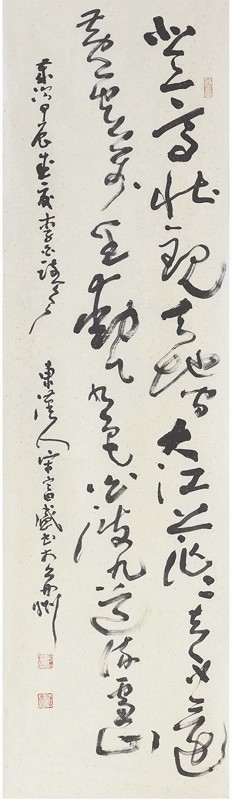 登高壯觀天地間大江茫茫去不還
黃雲萬里動風色白波九道流雪山
歲次甲辰李白詩 人宋富盛書於